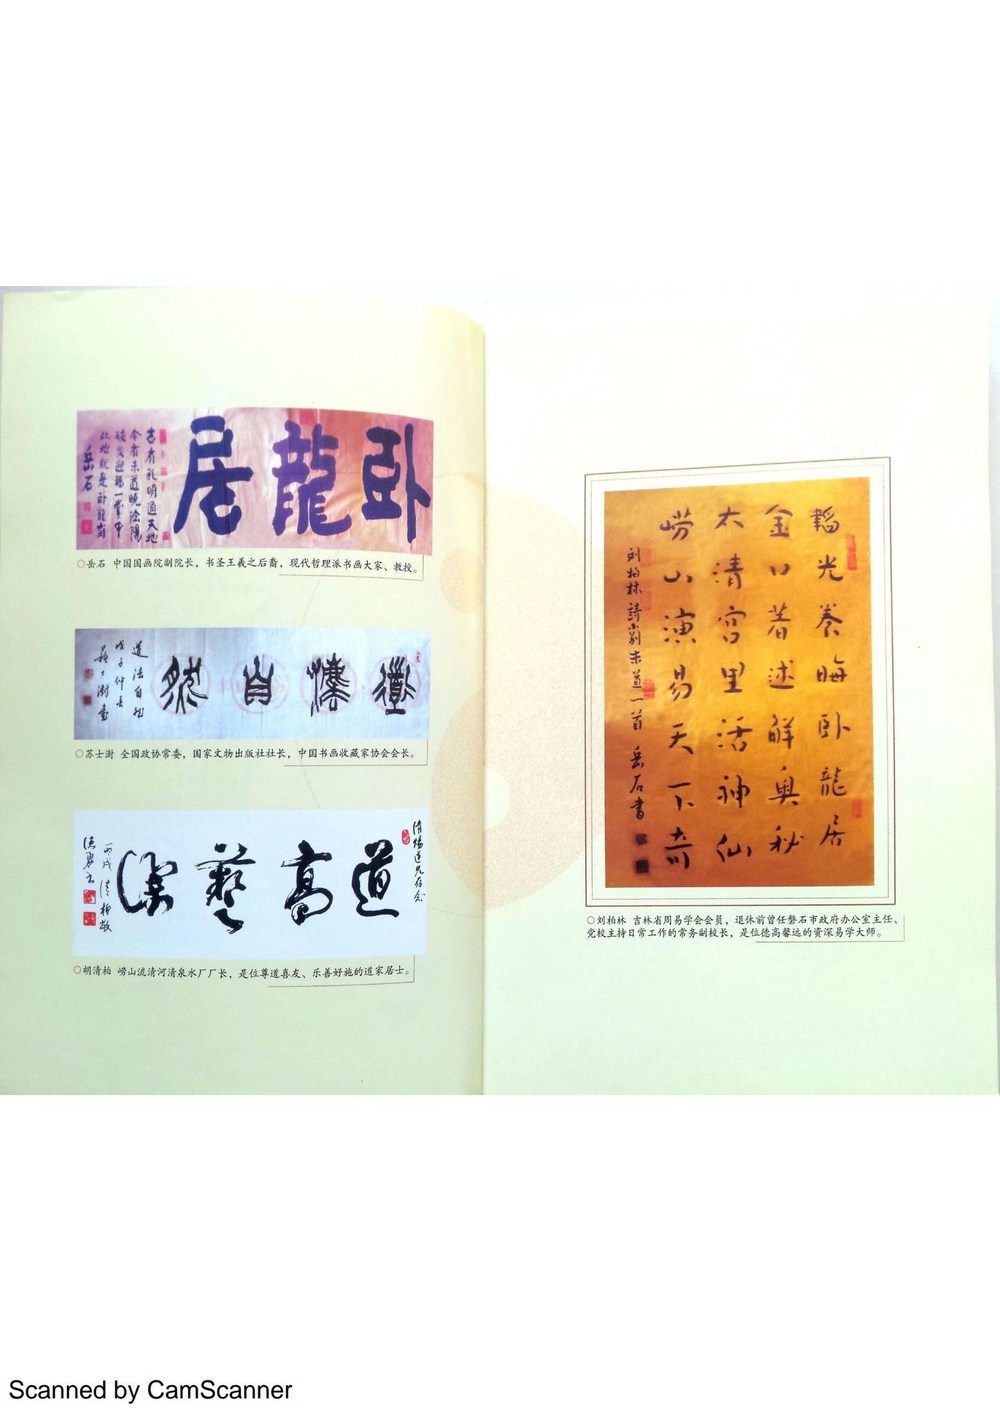 卧龍居
古有孔明通天地
今有朱道曉陰陽
岳石
○岳石 中国国画院副院长，书圣王羲之后裔，现代哲理派书画大家、教授。
道灋自然
道法自然
戊子仲冬
苏士澍书
○苏士澍 全国政协常委，国家文物出版社社长，中国书画收藏家协会会长。
道高藝深
丙戌
○胡清柏 崂山流清河清泉水厂厂长，是位尊道喜友、乐善好施的道家居士。
韜光养晦卧龍居
金口著述解奥秘
太清宫里活神仙
崂山演易天下奇
刘柏林詩 朱道一首 岳石書
○刘柏林 吉林省周易学会会员，退休前曾任磐石市政府办公室主任、
党校主持日常工作的常务副校长，是位德高馨远的资深易学大师。
Scanned by CamScanner